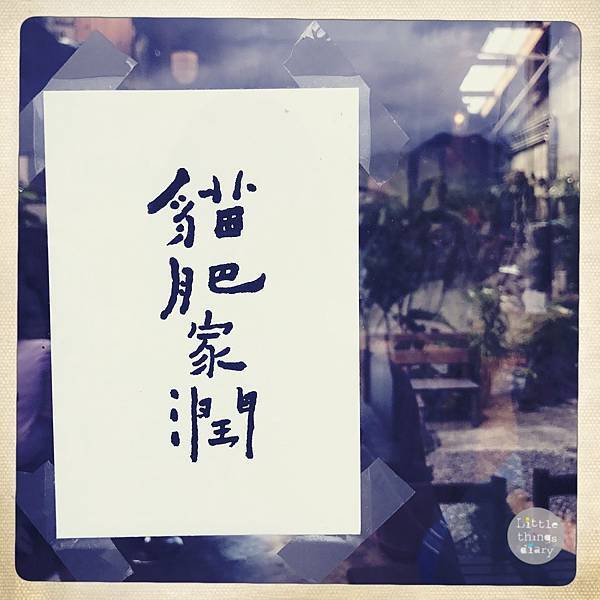 貓肥家潤
Little
things
diary